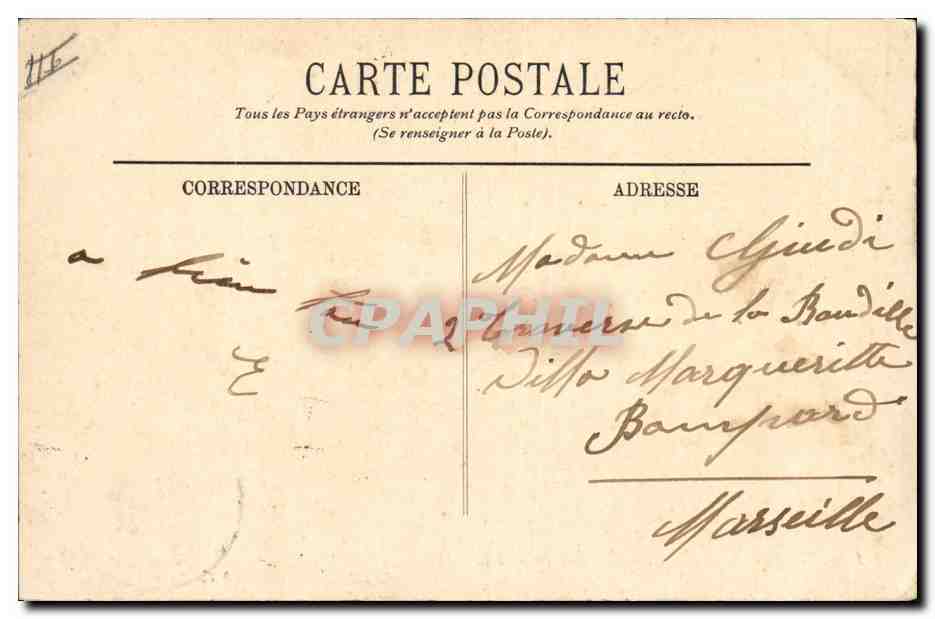 CARTE POSTALE
Tous les Pays étrangers n'acceptent pas la Correspondance au recto.
(Se renseigner à la Poste).
CORRESPONDANCE
ADRESSE
a bien
E
Madame Giudi
2 Traverse de la Baudille
Villa Margueritte
Bompard
Marseille
CPAPHIL